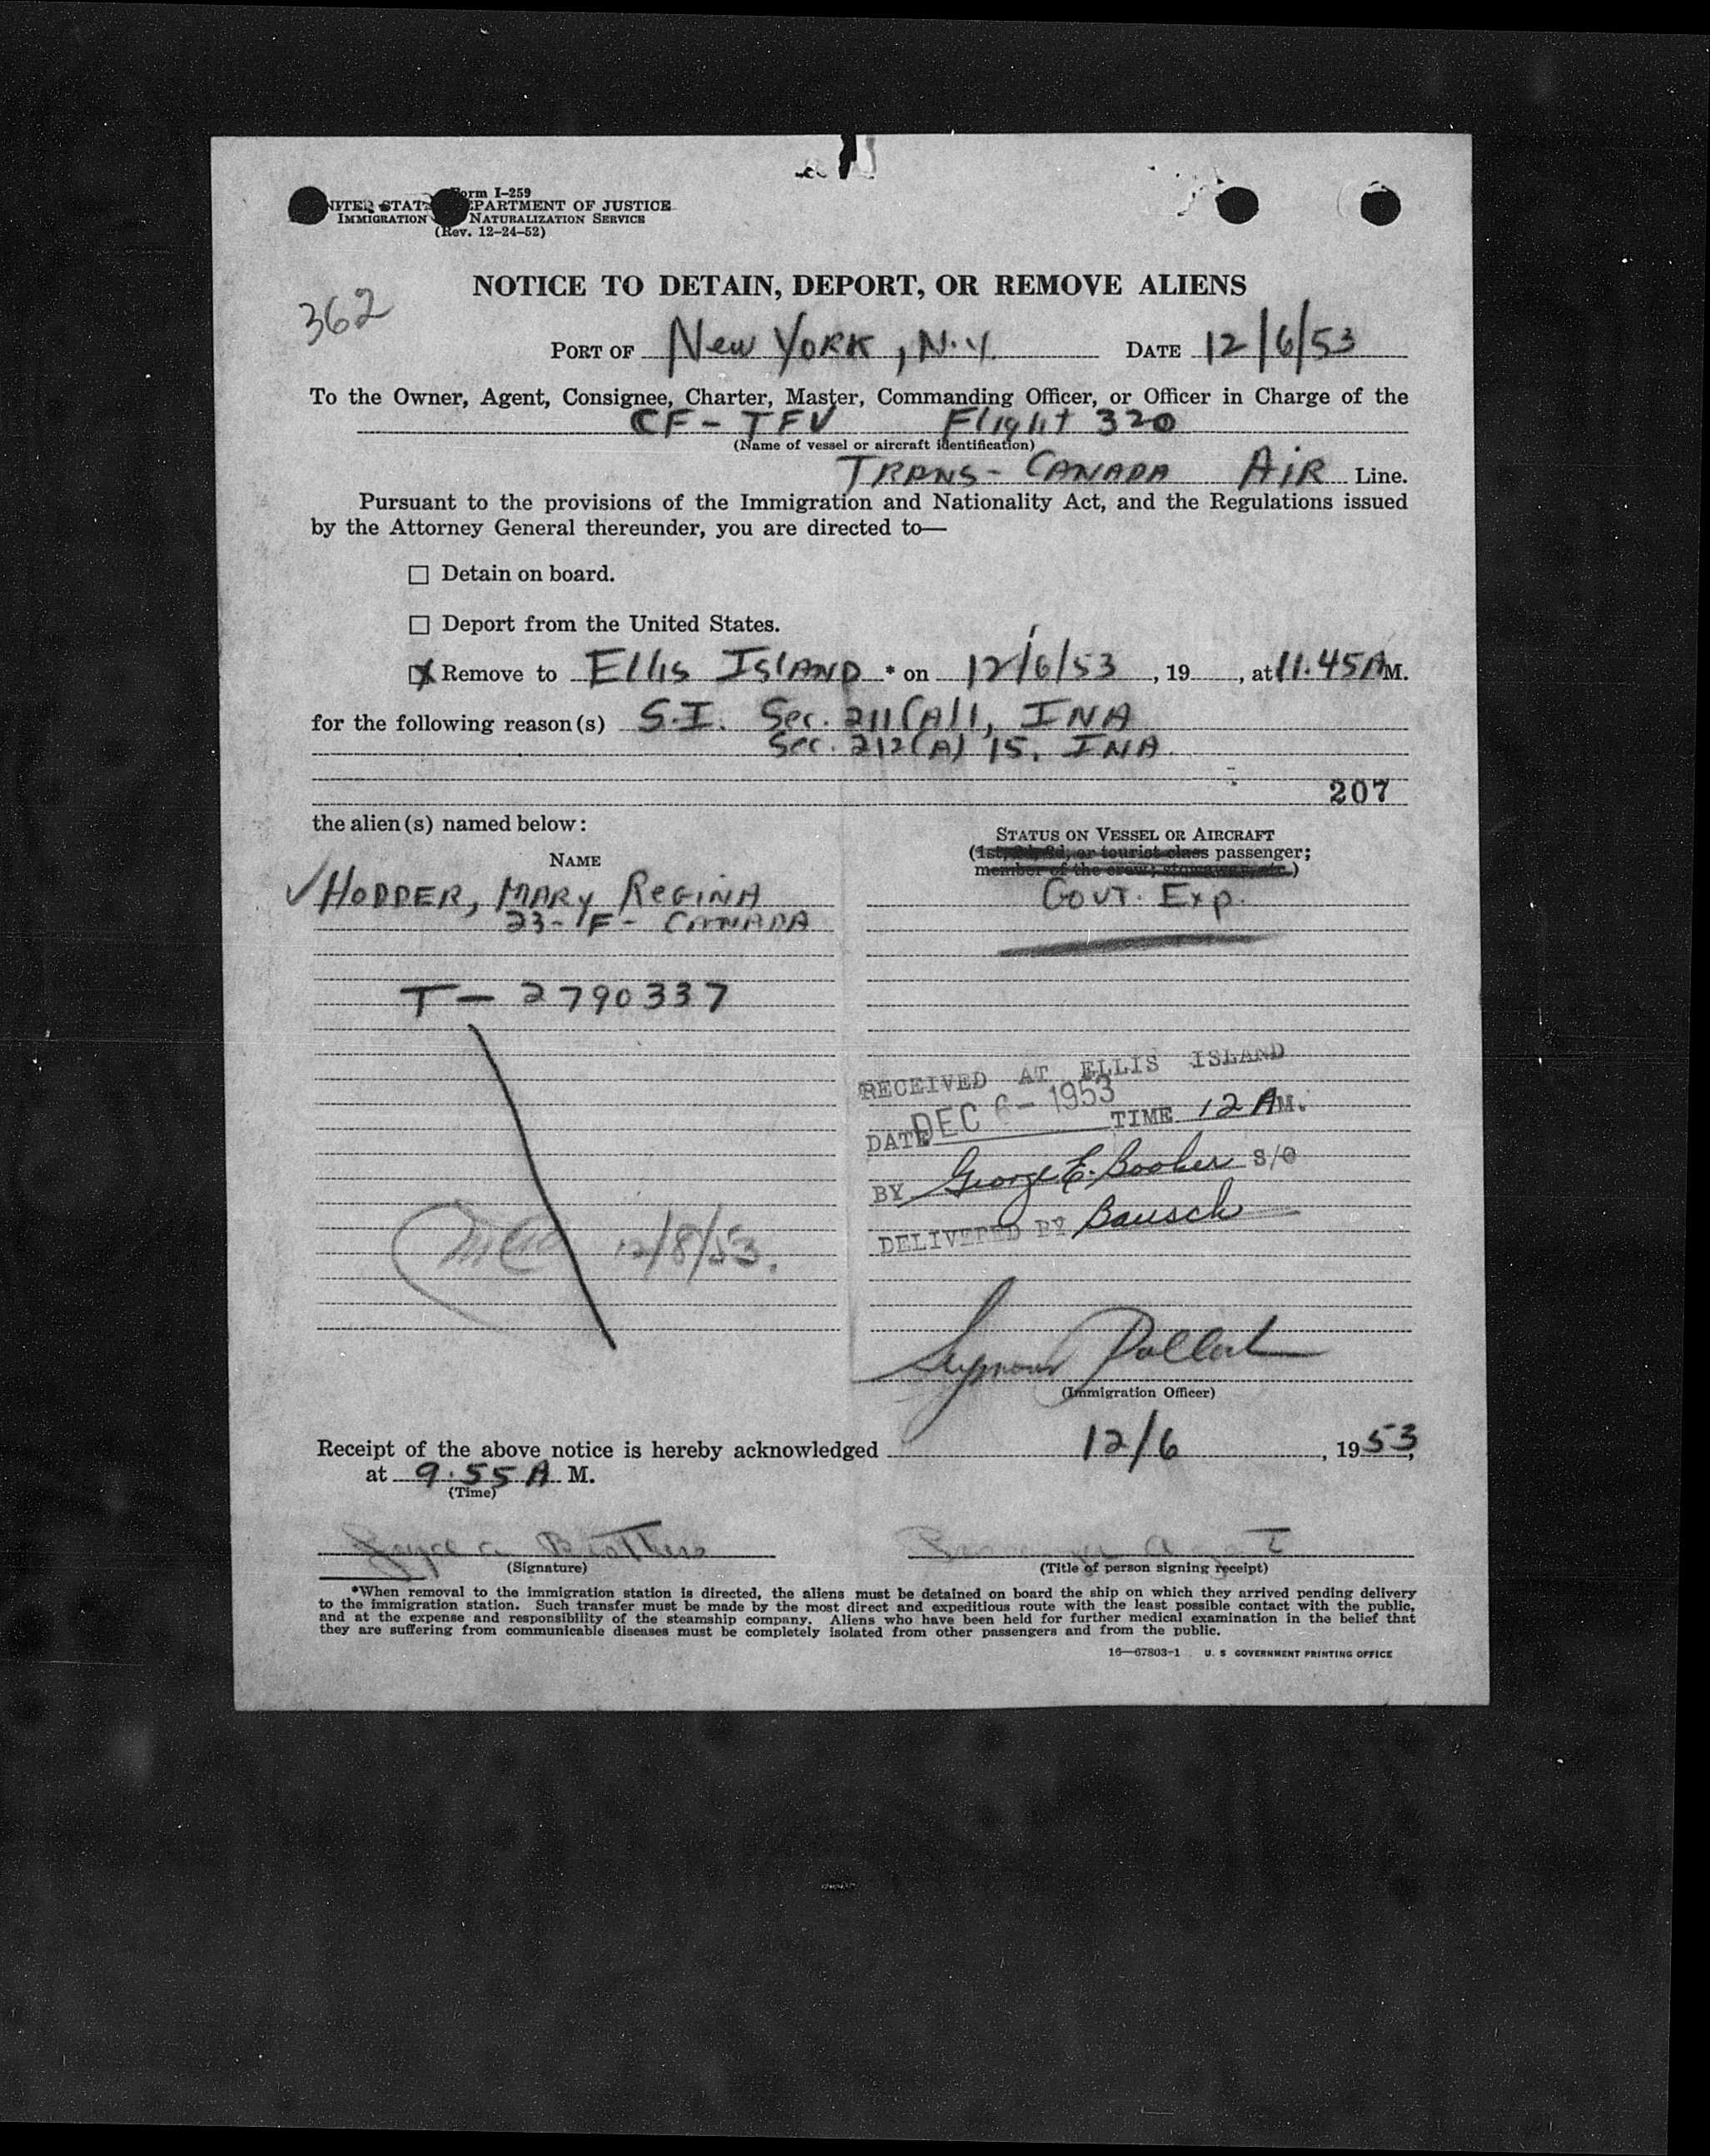 Form I-259
UNITED STATES DEPARTMENT OF JUSTICE
IMMIGRATION NATURALIZATION SERVICE
(Rev. 12-24-52)
NOTICE TO DETAIN, DEPORT, OR REMOVE ALIENS
362
PORT OF New York, N.Y. DATE 12/6/53
To the Owner, Agent, Consignee, Charter, Master, Commanding Officer, or Officer in Charge of the
CF-TFV Flight 320
(Name of vessel or aircraft identification)
TRANS-CANADA AIR Line.
Pursuant to the provisions of the Immigration and Nationality Act, and the Regulations issued
by the Attorney General thereunder, you are directed to—
☐ Detain on board.
☐ Deport from the United States.
☒ Remove to Ellis Island * on 12/6/53, 19 , at 11.45 A M.
for the following reason(s) S.I. Sec. 211(A)1, INA
Sec. 212(A) 15, INA.
207
the alien(s) named below:
NAME
STATUS ON VESSEL OR AIRCRAFT
(1st, 2d, 3d, or tourist class passenger;
member of the crew; stowaway, etc.)
✓ HODDER, MARY REGINA
GOVT. Exp.
23-F-CANADA
T-2790337
RECEIVED AT ELLIS ISLAND
DATE DEC 6-1953 TIME 12 AM.
BY George E. Booher S/O
DELIVERED BY Bausch
12/8/53.
Seymour Pollack
(Immigration Officer)
Receipt of the above notice is hereby acknowledged 12/6, 1953,
at 9.55 A M.
(Time)
Joyce A Brothers
Passenger Agent
(Signature)
(Title of person signing receipt)
*When removal to the immigration station is directed, the aliens must be detained on board the ship on which they arrived pending delivery
to the immigration station. Such transfer must be made by the most direct and expeditious route with the least possible contact with the public,
and at the expense and responsibility of the steamship company. Aliens who have been held for further medical examination in the belief that
they are suffering from communicable diseases must be completely isolated from other passengers and from the public.
16—67803-1 U. S GOVERNMENT PRINTING OFFICE